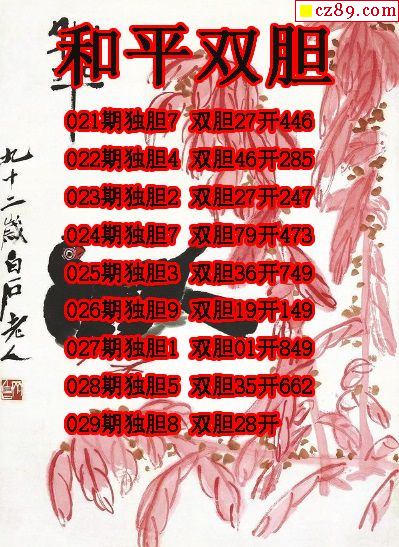 cz89.com
和平双胆
021期独胆7 双胆27开446
022期独胆4 双胆46开285
023期独胆2 双胆27开247
024期独胆7 双胆79开473
025期独胆3 双胆36开749
026期独胆9 双胆19开149
027期独胆1 双胆01开849
028期独胆5 双胆35开662
029期独胆8 双胆28开
九十二歲白石老人